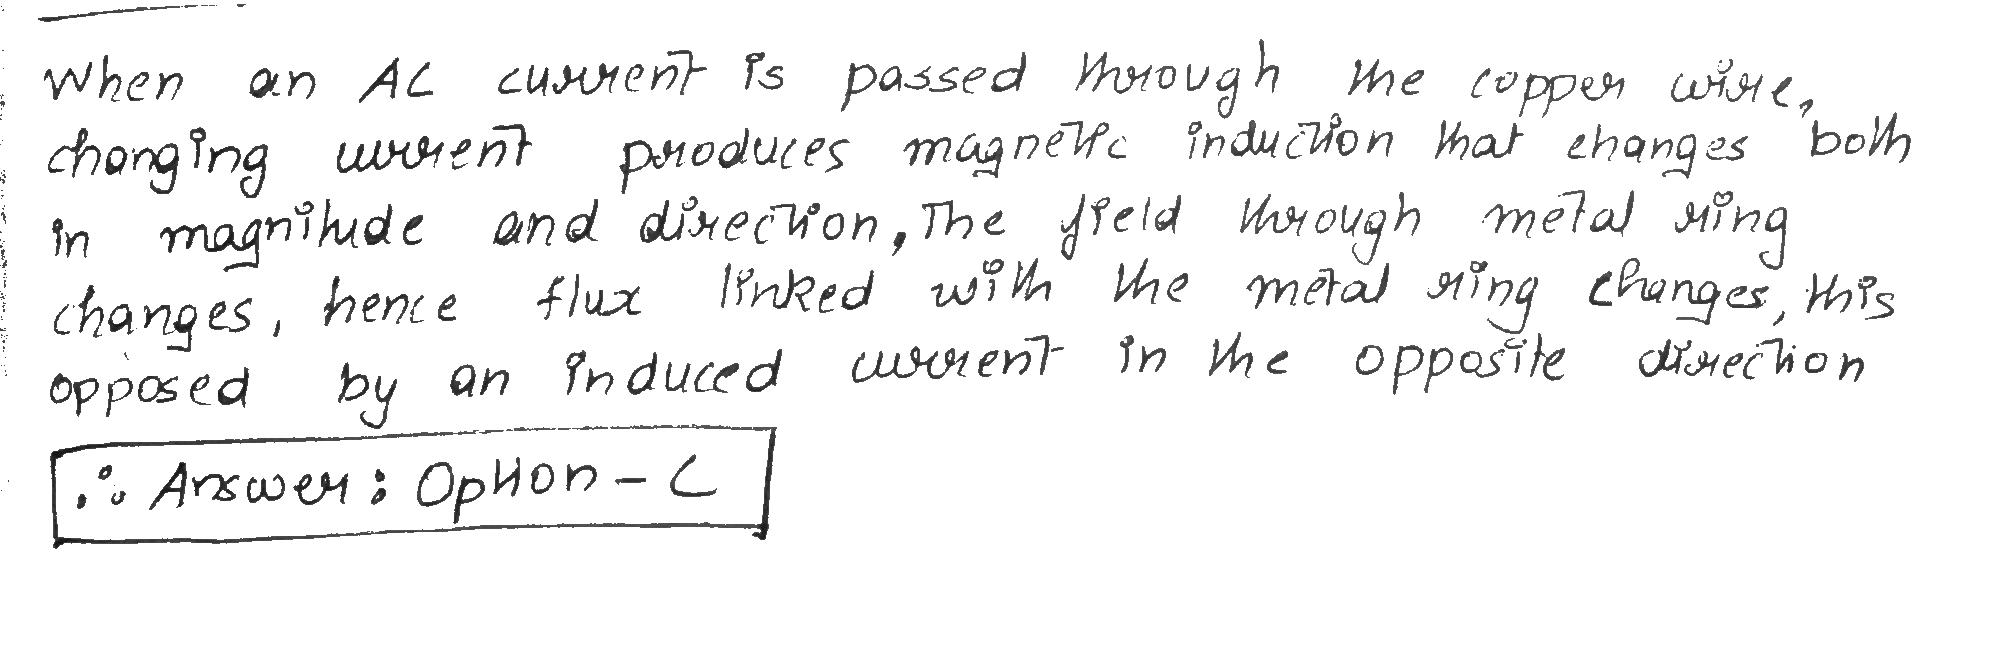 When an AC current is passed through the copper wire,
changing current produces magnetic induction that changes both
in magnitude and direction, The field through metal ring
changes, hence flux linked with the metal ring changes, this
opposed by an induced current in the opposite direction
∴ Answer: Option - C